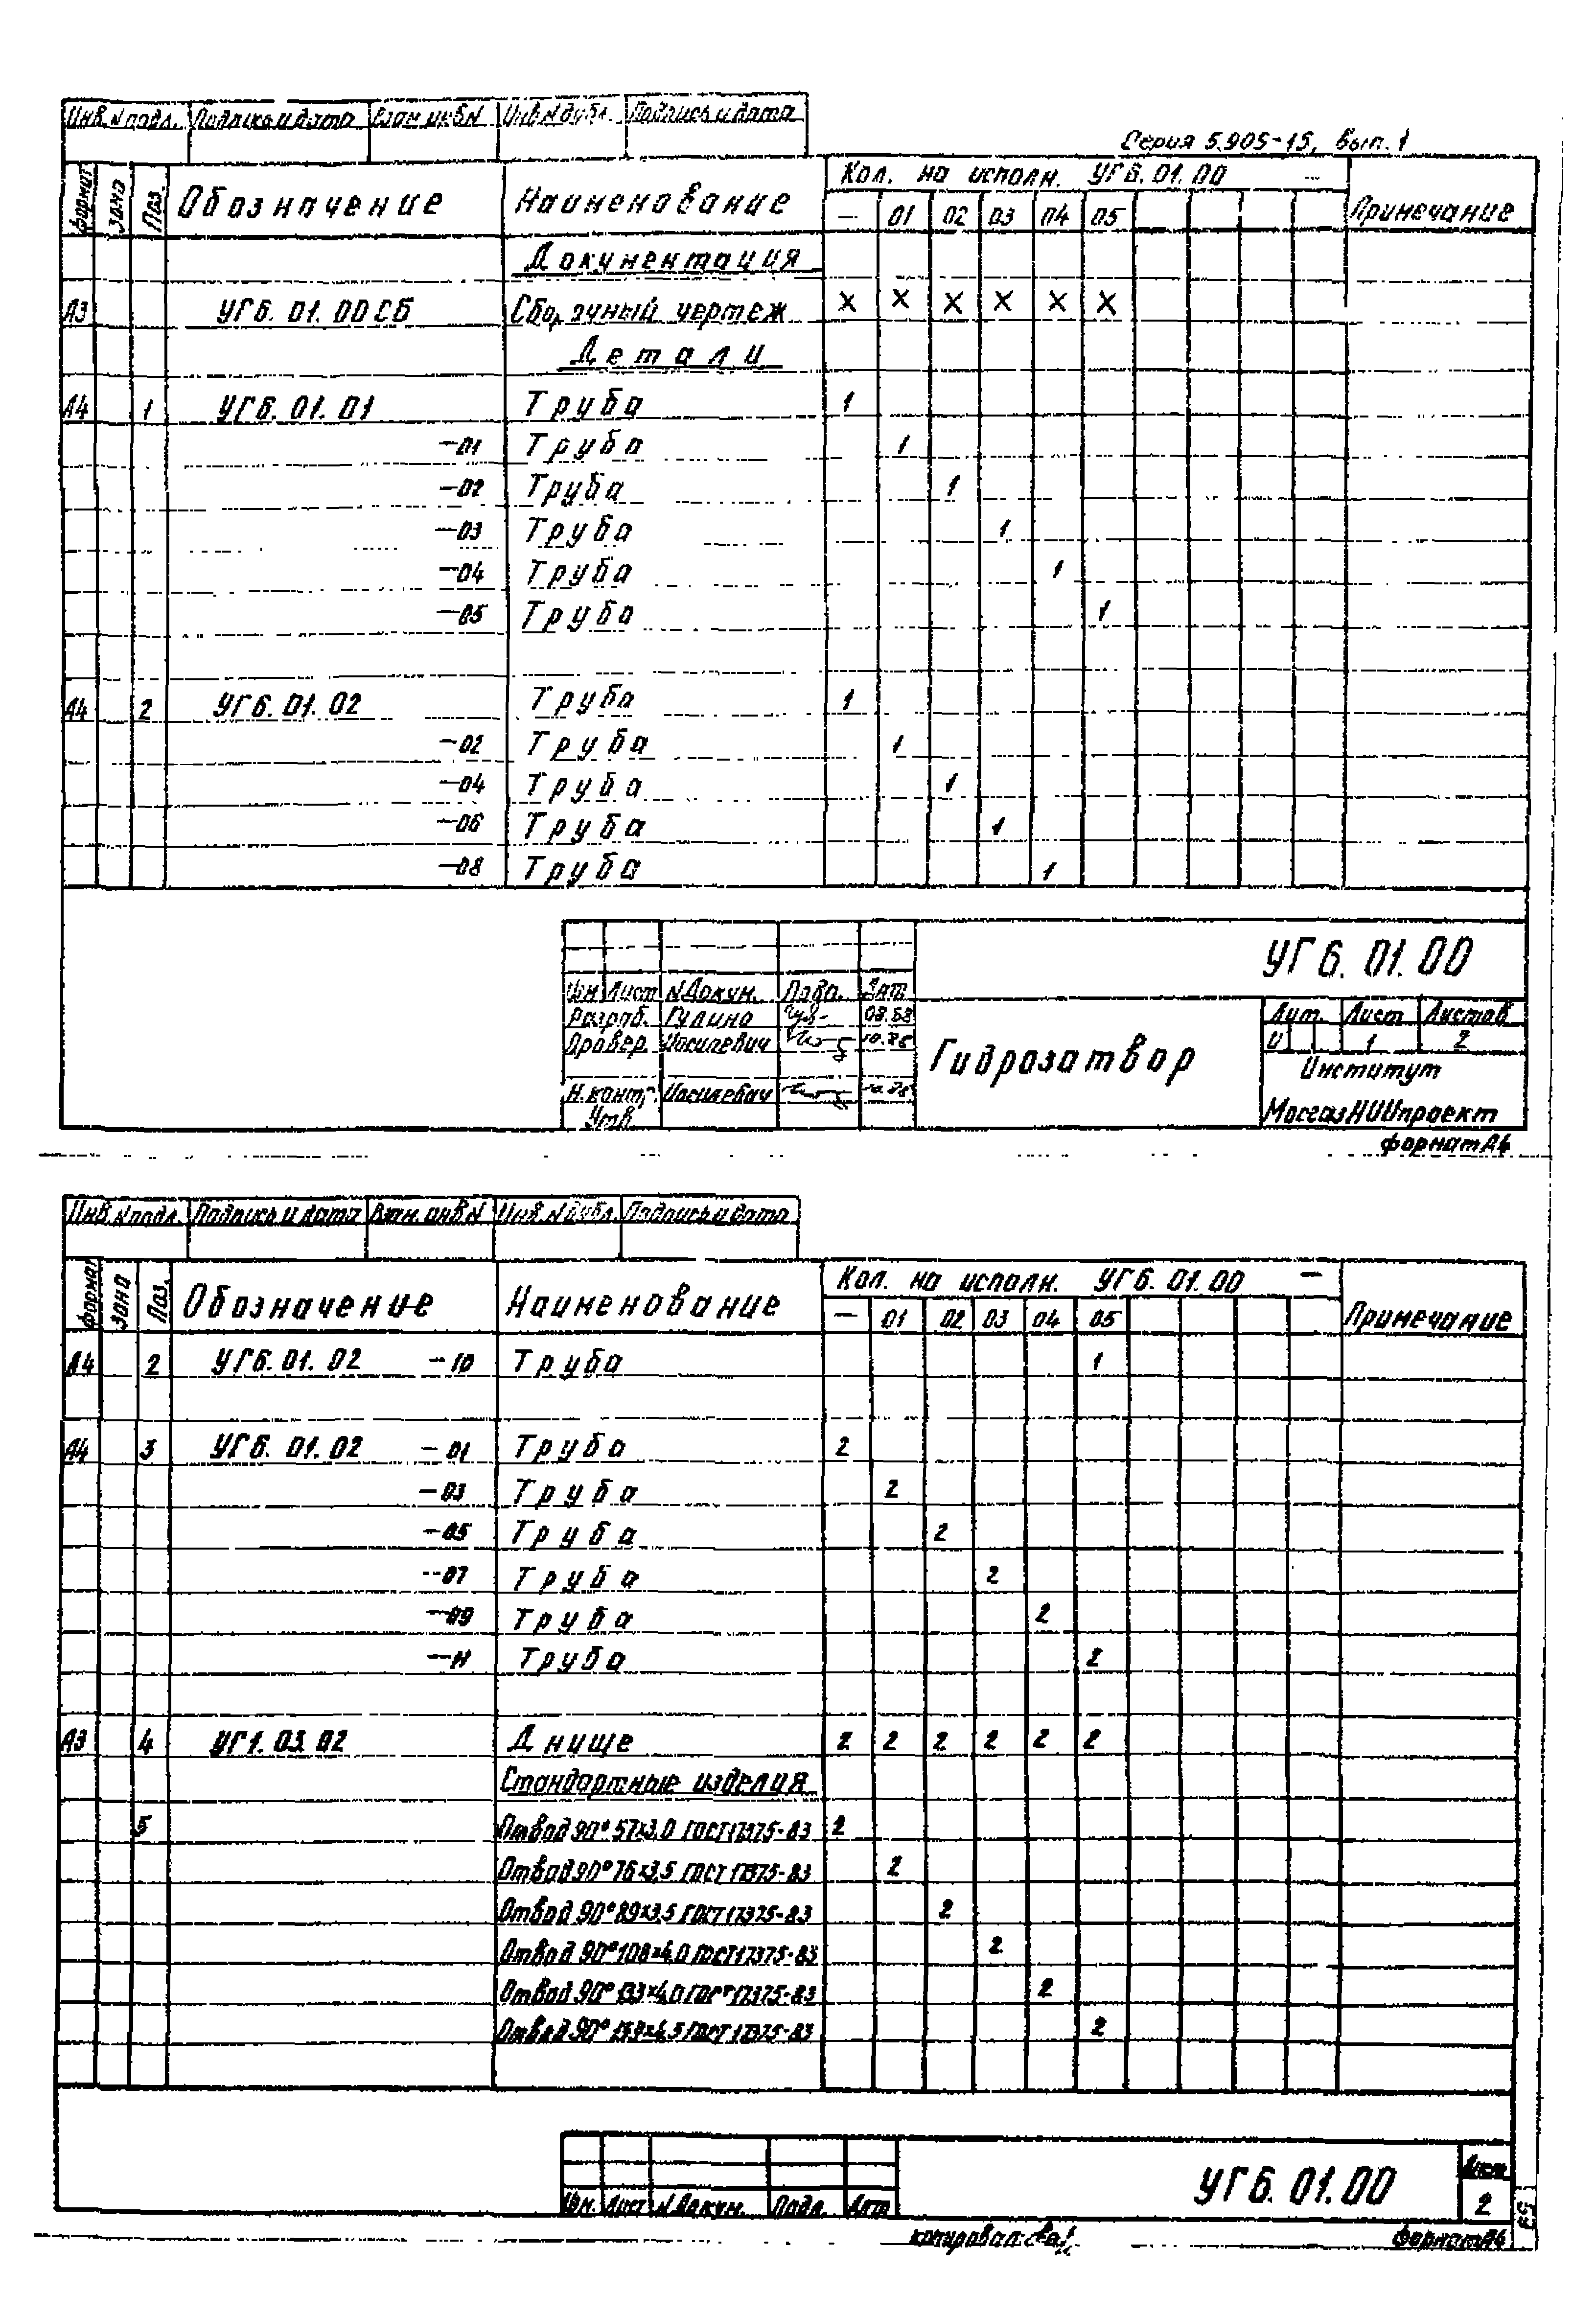 Инв. N подл. Подпись и дата Взам. инв N Инв N дубл. Подпись и дата
Серия 5.905-15, вып. 1
Формат Зона Поз. Обозначение Наименование Кол. на исполн. УГ6.01.00 — Примечание
— 01 02 03 04 05
Документация
А3 УГ6. 01. 00 СБ Сборочный чертеж X X X X X X
Детали
А4 1 УГ6. 01. 01 Труба 1
—01 Труба 1
—02 Труба 1
—03 Труба 1
—04 Труба 1
—05 Труба 1
А4 2 УГ6. 01. 02 Труба 1
—02 Труба 1
—04 Труба 1
—06 Труба 1
—08 Труба 1
УГ6. 01. 00
Изм Лист N Докум. Подп. Дат
Разраб. Гулина
Провер. Иосилевич
Н. контр. Иосилевич
Утв.
Гидрозатвор
Лит. Лист Листов
И 1 2
Институт
МосгазНИИпроект
формат А4
Инв. N подл. Подпись и дата Взам. инв N Инв. N дубл. Подпись и дата
Формат Зона Поз. Обозначение Наименование Кол. на исполн. УГ6.01.00 — Примечание
— 01 02 03 04 05
А4 2 УГ6. 01. 02 —10 Труба 1
А4 3 УГ6. 01. 02 —01 Труба 2
—03 Труба 2
—05 Труба 2
—07 Труба 2
—09 Труба 2
—11 Труба 2
А3 4 УГ1. 03. 02 Днище 2 2 2 2 2 2
Стандартные изделия
5 Отвод 90° 57×3,0 ГОСТ 17375-83 2
Отвод 90° 76×3,5 ГОСТ 17375-83 2
Отвод 90° 89×3,5 ГОСТ 17375-83 2
Отвод 90° 108×4,0 ГОСТ 17375-83 2
Отвод 90° 133×4,0 ГОСТ 17375-83 2
Отвод 90° 159×4,5 ГОСТ 17375-83 2
Изм. Лист N Докум. Подп. Дат
УГ6. 01. 00
Лист
2
59
копировал:
формат А4